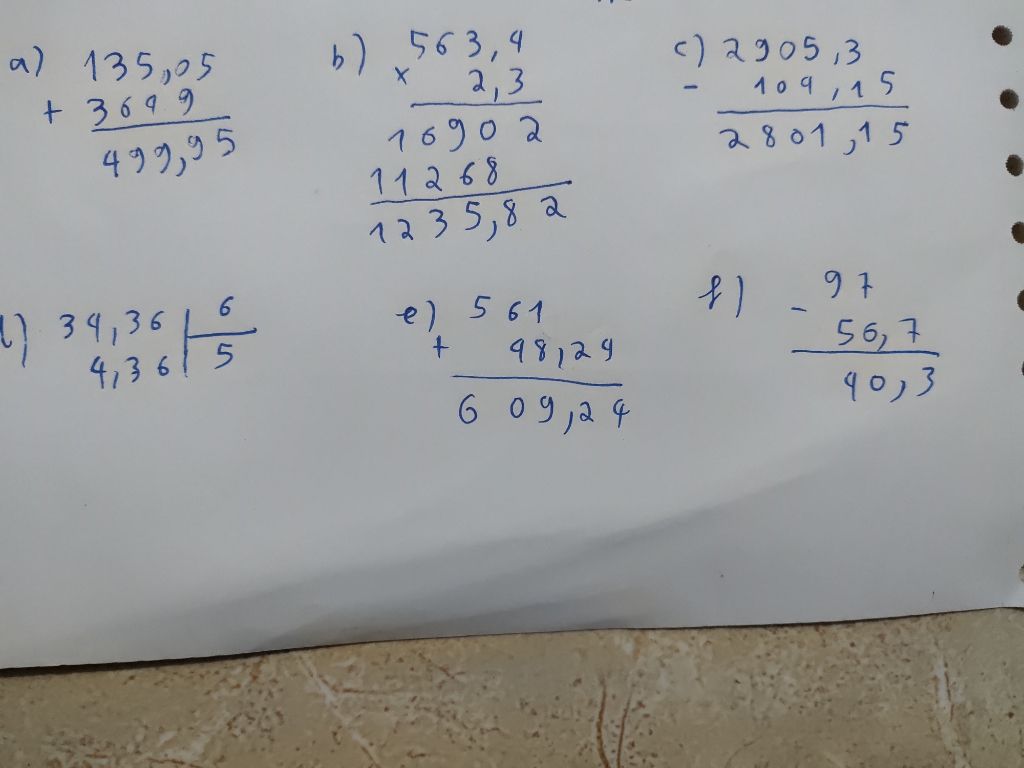 a) 135,05
+ 3649
499,95
b) 563,4
x 2,3
16902
11268
1235,82
c) 2905,3
- 104,15
2801,15
d) 34,36 | 6
4,36 | 5
e) 561
+ 48,24
609,24
f) 97
- 56,7
40,3